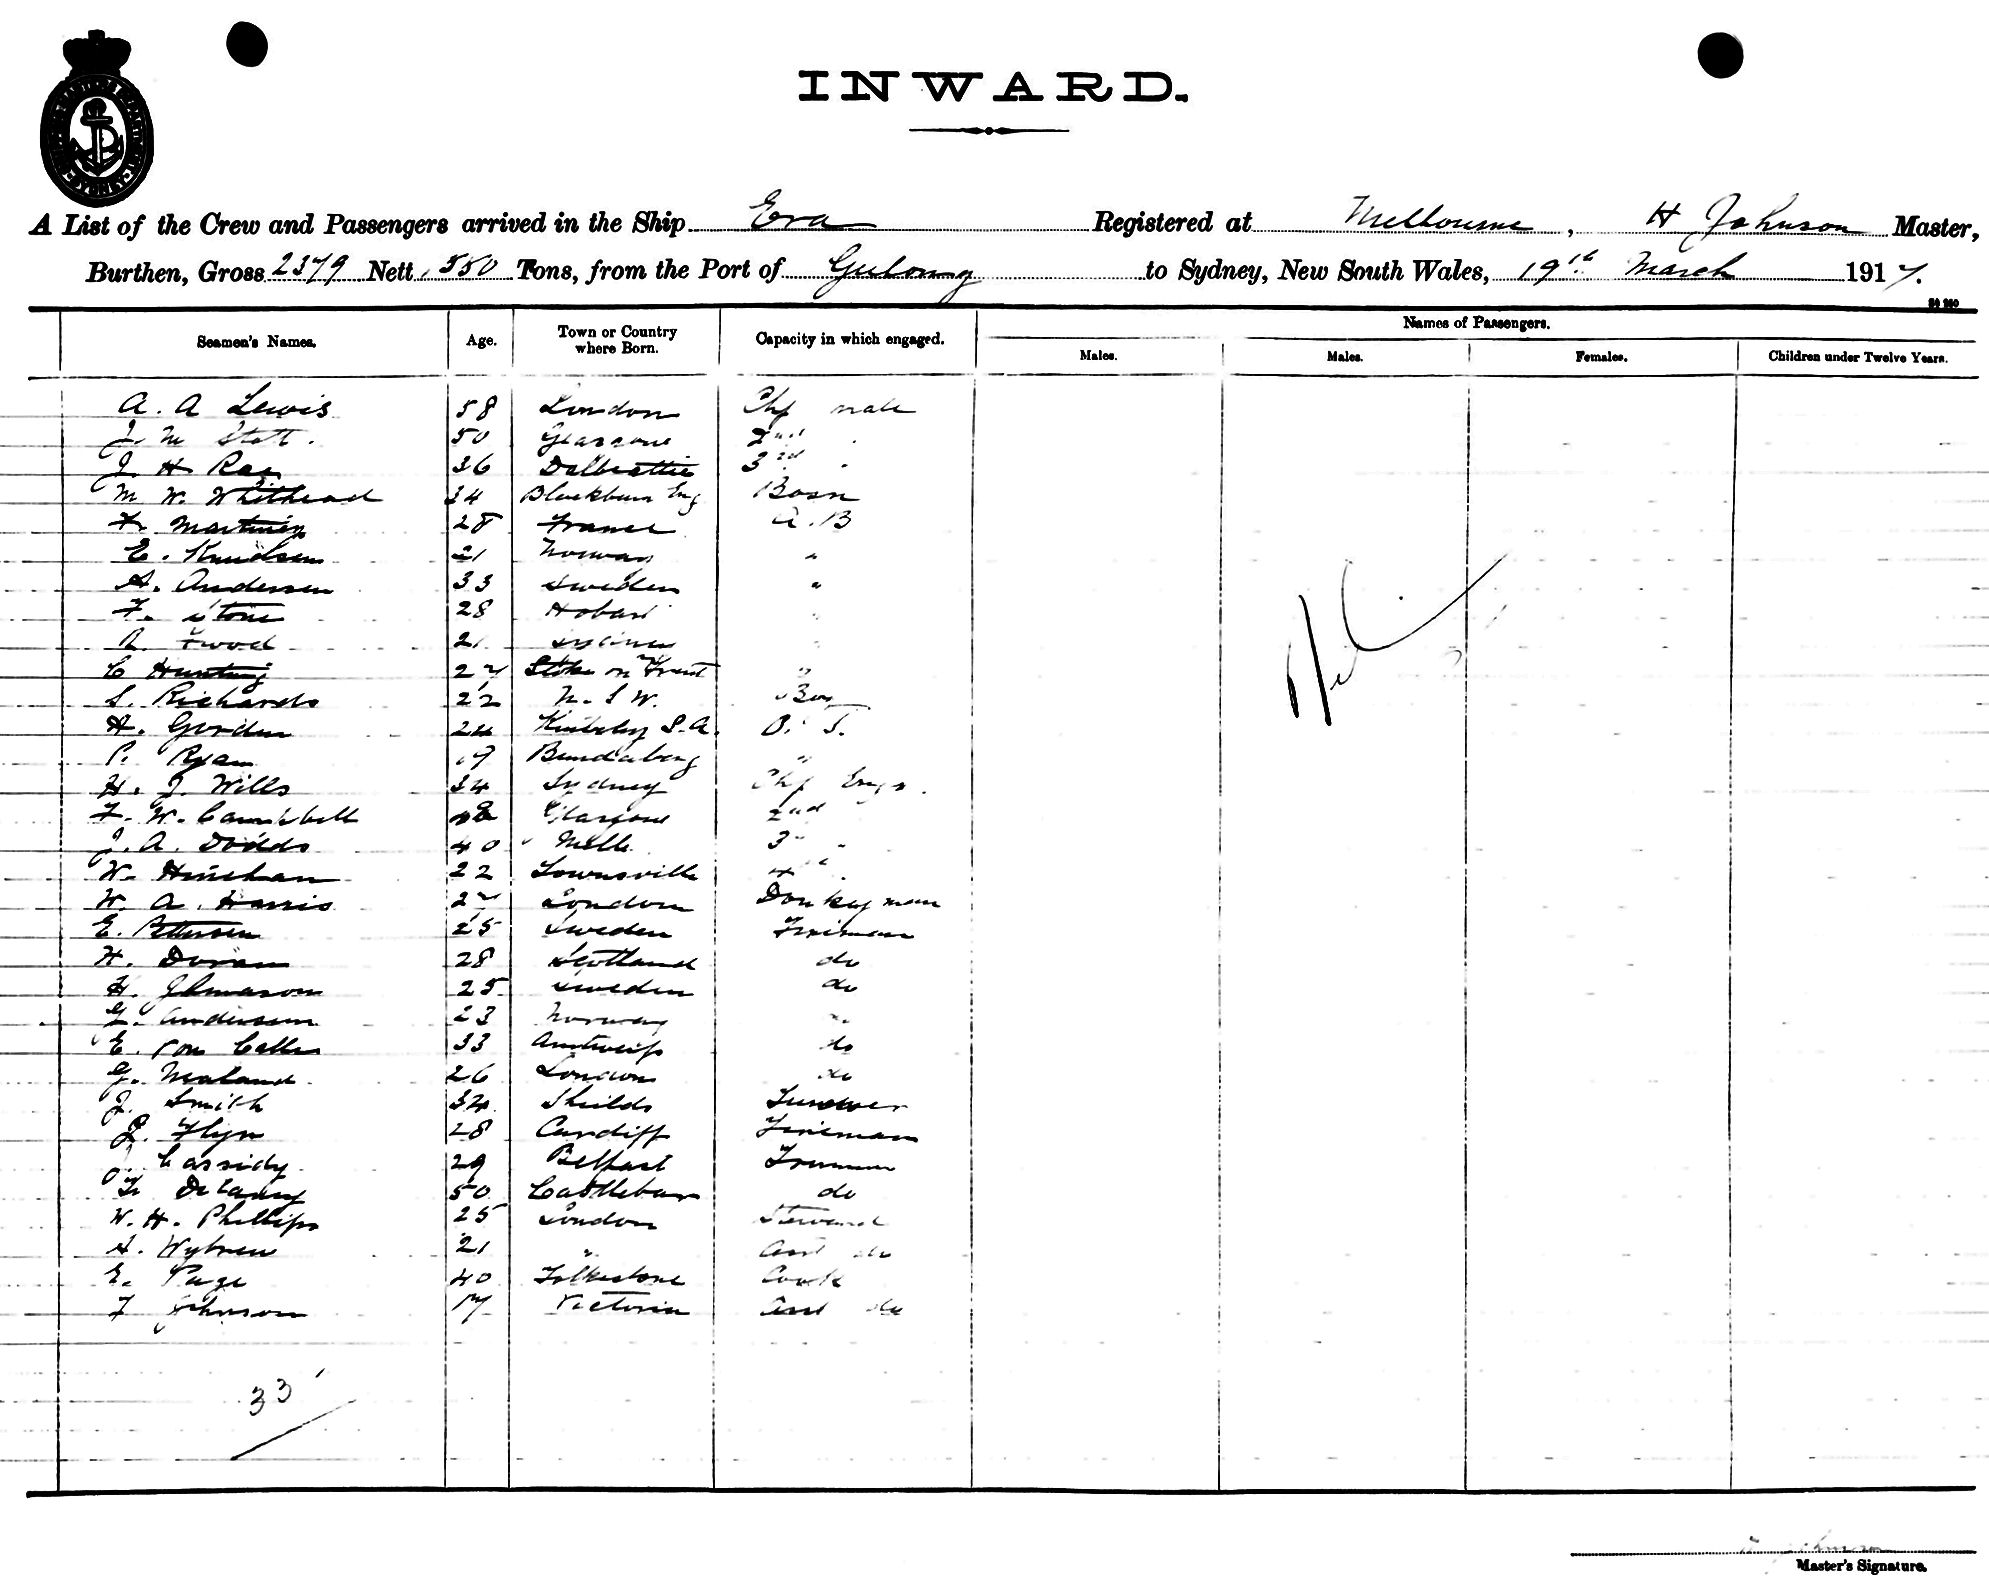 INWARD.
A List of the Crew and Passengers arrived in the Ship Era Registered at Melbourne, H Johnson Master,
Burthen, Gross 2379 Nett 1550 Tons, from the Port of Geelong to Sydney, New South Wales, 19th March 1917.
Names of Passengers.
Seamen's Names. Age. Town or Country where Born. Capacity in which engaged. Males. Males. Females. Children under Twelve Years.
A. A Lewis 58 London Chf mate
J. M Stott. 50 Glasgow 2nd "
J H Rae 36 Dalbeattie 3rd "
M W. Whithead 34 Blackburn Eng Bosn
F. Martinez 28 France A.B
E. Knudsen 21 Norway "
A. Andersen 33 Sweden "
F. Stone 28 Hobart "
21 "
C Hunting 27 Stoke on Trent "
S. Richards 22 N.S.W. Boy
H. Gorden 24 Kimberley S.A. O.S.
P. Ryan 19 Bundaberg "
H. J. Wills 34 Sydney Chf Engr.
F. W. Campbell 48 Glasgow 2nd
J. A. Dodds 40 Melb. 3rd "
W. Hinchan 22 Townsville 4th "
W. A. Harris 27 London Donkeyman
E. Pettersen 25 Sweden Fireman
H. Doran 28 Scotland do
H. Johnason 25 Sweden do
G. Andersen 23 Norway do
E. Von Calles 33 Anntwerp do
G. Maland 26 London do
J. Smith 34 Shields
J. Flyn 28 Cardiff Fireman
J. Cassidy 29 Belfast Trimmer
T. Delaney 50 Castlebar do
W. H. Phillips 25 London Steward
A. Wybrew 21 " Asst do
E. Page 40 Folkestone Cook
F Johnson 17 Victoria Asst do
Nil
33
H Johnson
Master's Signature.